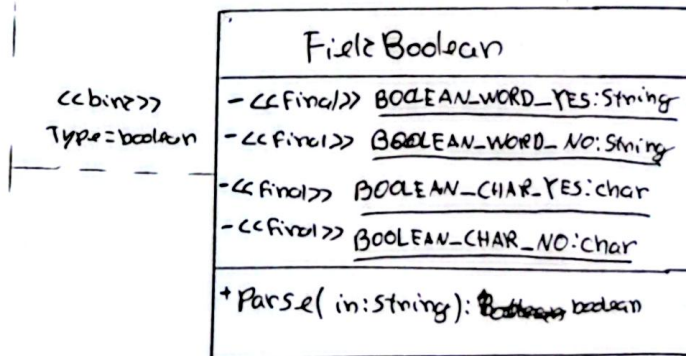 FieldBoolean
<<bind>>
Type=boolean
- <<final>> BOOLEAN_WORD_YES:String
- <<final>> BOOLEAN_WORD_NO:String
- <<final>> BOOLEAN_CHAR_YES:char
- <<final>> BOOLEAN_CHAR_NO:char
+ Parse( in:String): boolean